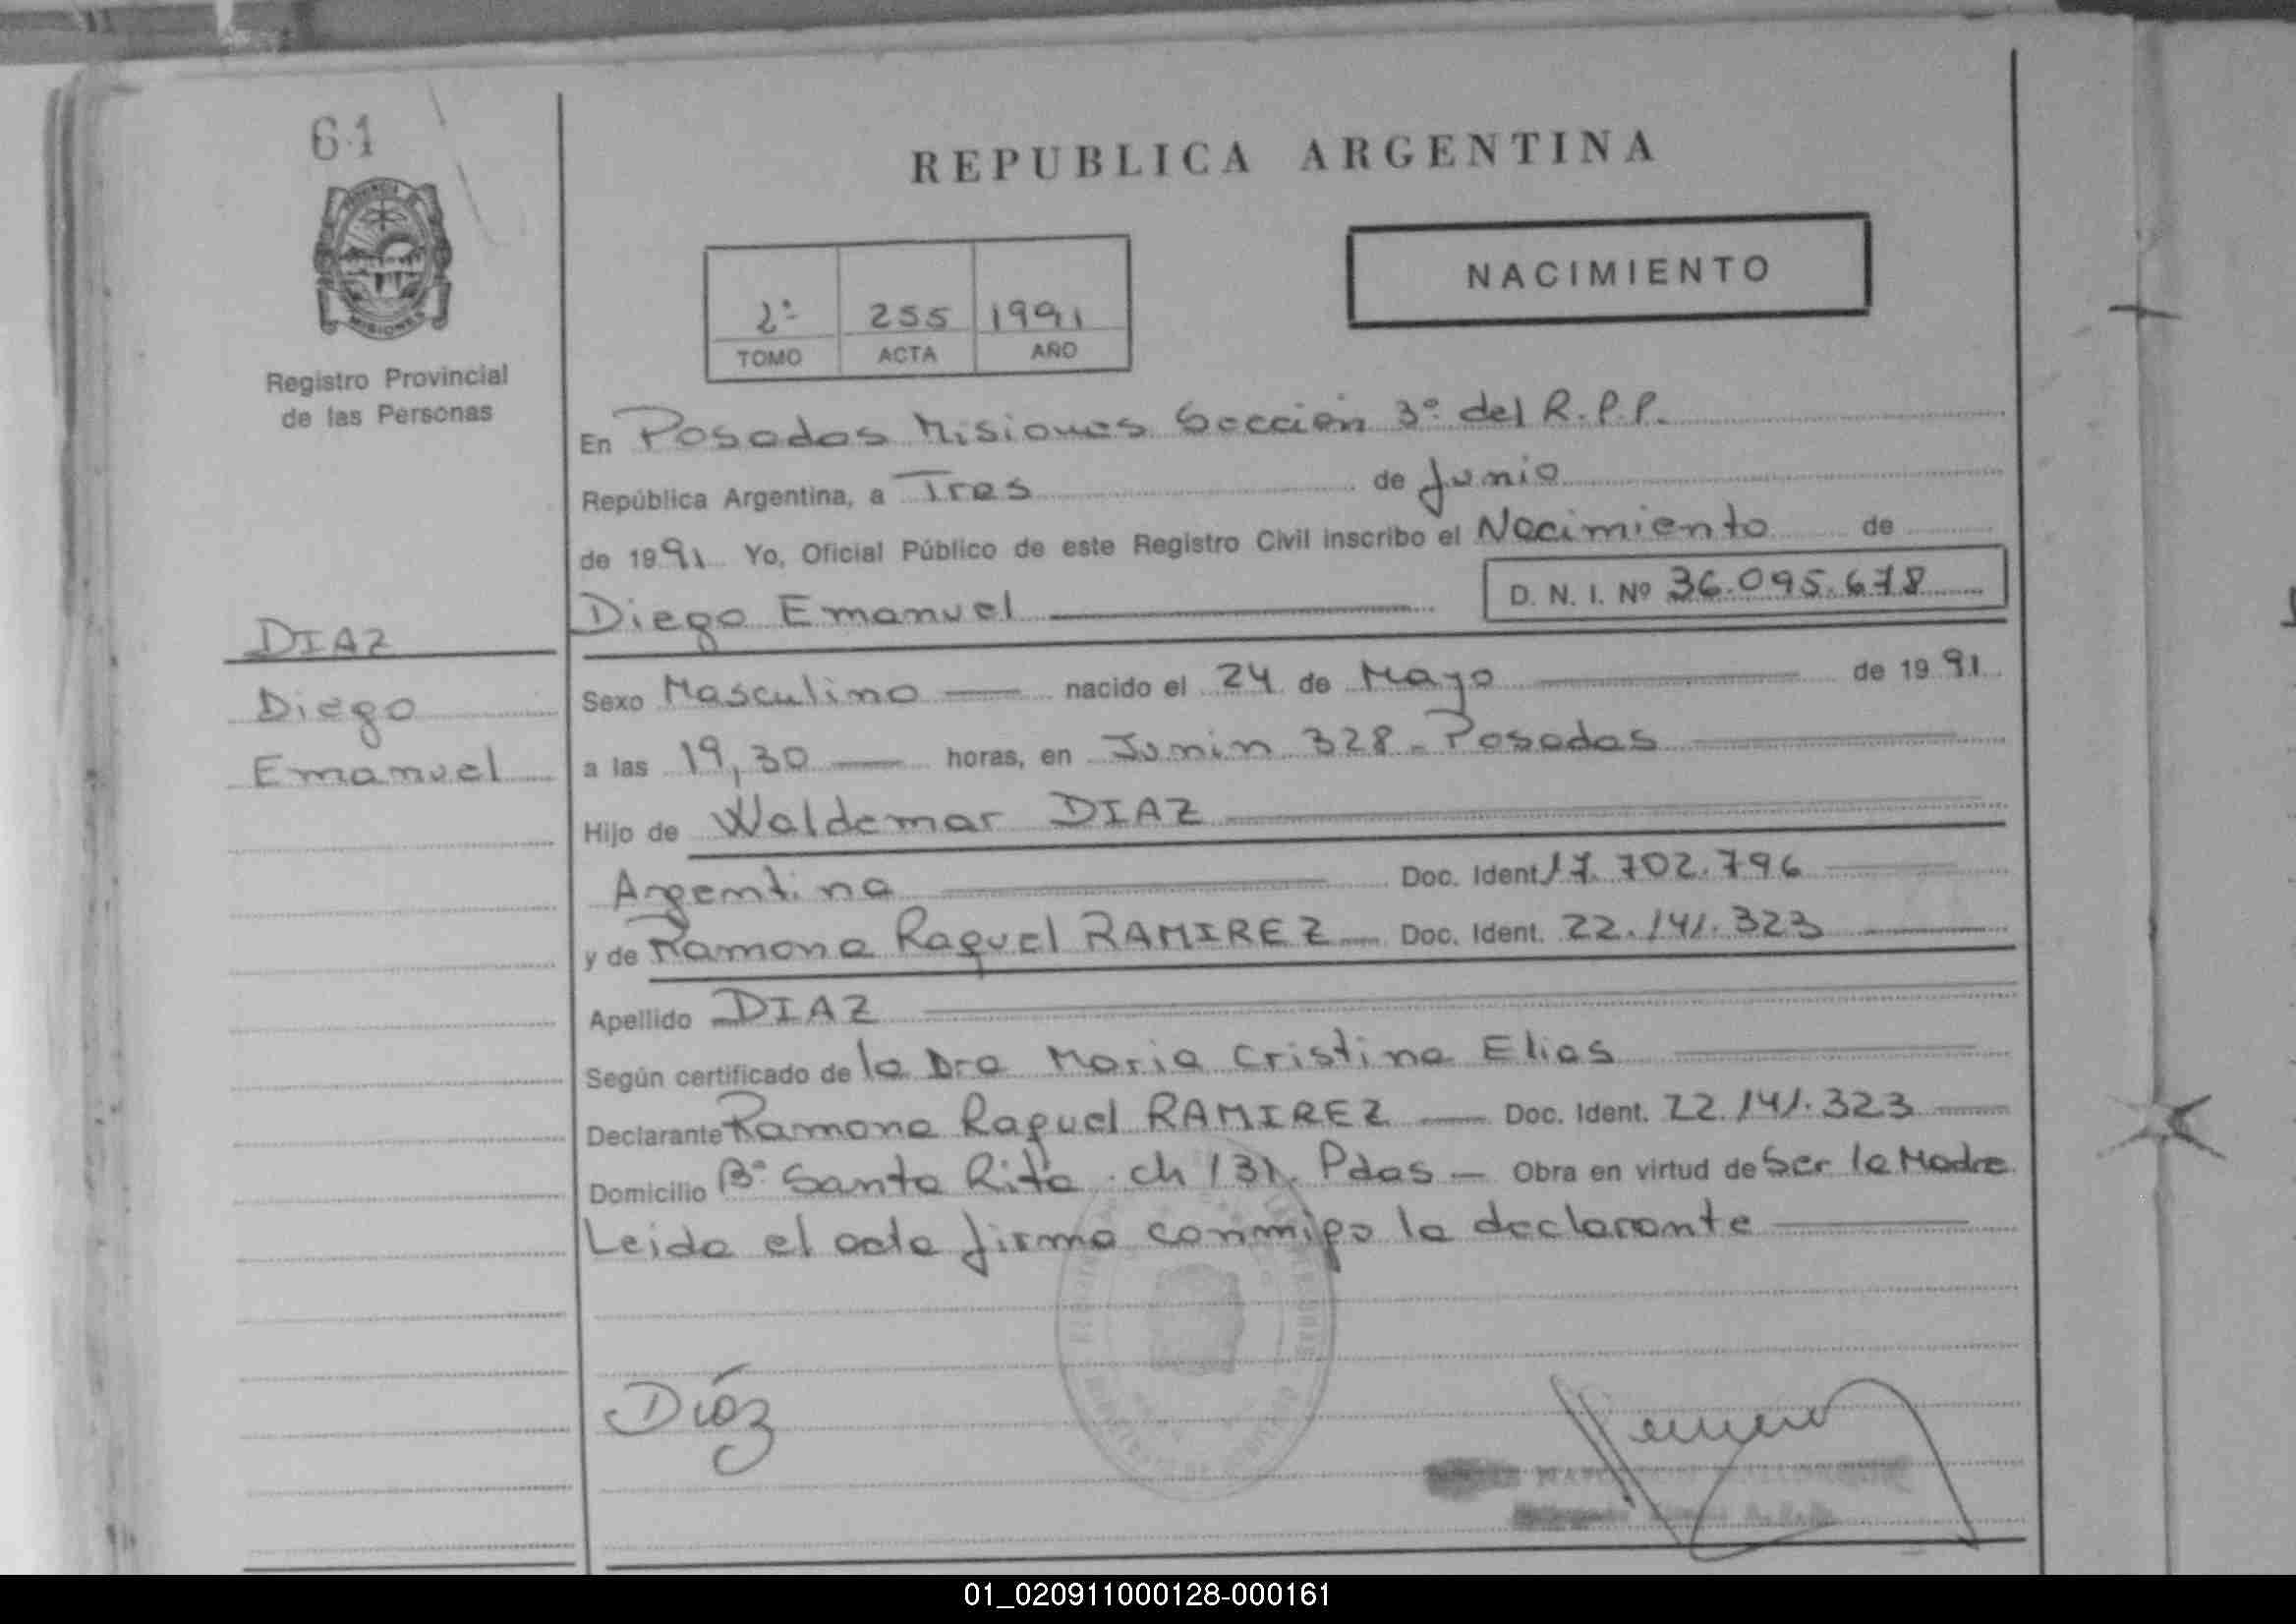 61
REPUBLICA ARGENTINA
NACIMIENTO
2º 255 1991
TOMO ACTA AÑO
MISIONES
Registro Provincial
de las Personas
En Posadas Misiones Sección 3º del R.P.P.
República Argentina, a Tres de Junio
de 1991 Yo, Oficial Público de este Registro Civil inscribo el Nacimiento de
Diego Emanuel D. N. I. Nº 36.095.678
DIAZ
Diego
Emanuel
Sexo Masculino nacido el 24 de Mayo de 1991
a las 19,30 horas, en Junin 328 - Posadas
Hijo de Waldemar DIAZ
Argentina Doc. Ident 17.702.796
y de Ramona Raquel RAMIREZ Doc. Ident. 22.141.323
Apellido DIAZ
Según certificado de la Dra Maria Cristina Elias
Declarante Ramona Raquel RAMIREZ Doc. Ident. 22.141.323
Domicilio Bº Santa Rita ch 131. Pdas - Obra en virtud de Ser la Madre
Leida el acta firma conmigo la declarante
Díaz
01_020911000128-000161